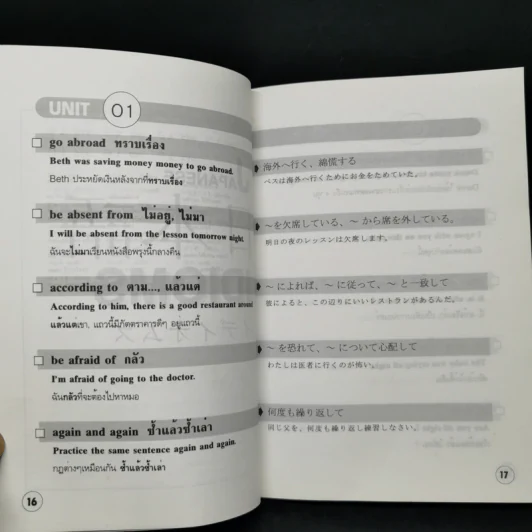 UNIT 01
go abroad ทราบเรื่อง
Beth was saving money money to go abroad.
Beth ประหยัดเงินหลังจากที่ทราบเรื่อง
be absent from ไม่อยู่, ไม่มา
I will be absent from the lesson tomorrow night.
ฉันจะไม่มาเรียนหนังสือพรุ่งนี้กลางคืน
according to ตาม..., แล้วแต่
According to him, there is a good restaurant around
แล้วแต่เขา, แถวนี้มีภัตตาคารดีๆ อยู่แถวนี้
be afraid of กลัว
I'm afraid of going to the doctor.
ฉันกลัวที่จะต้องไปหาหมอ
again and again ซ้ำแล้วซ้ำเล่า
Practice the same sentence again and again.
กฎต่างๆเหมือนกัน ซ้ำแล้วซ้ำเล่า
16
海外へ行く、綿慌する
ベスは海外へ行くためにお金をためていた。
~を欠席している、~ から席を外している。
明日の夜のレッスンは欠席します。
~ によれば、~ に従って、~ と一致して
彼によると、この辺りにいいレストランがあるんだ。
~ を恐れて、~ について心配して
わたしは医者に行くのが怖い。
何度も繰り返して
同じ文を、何度も繰り返し練習しなさい。
17